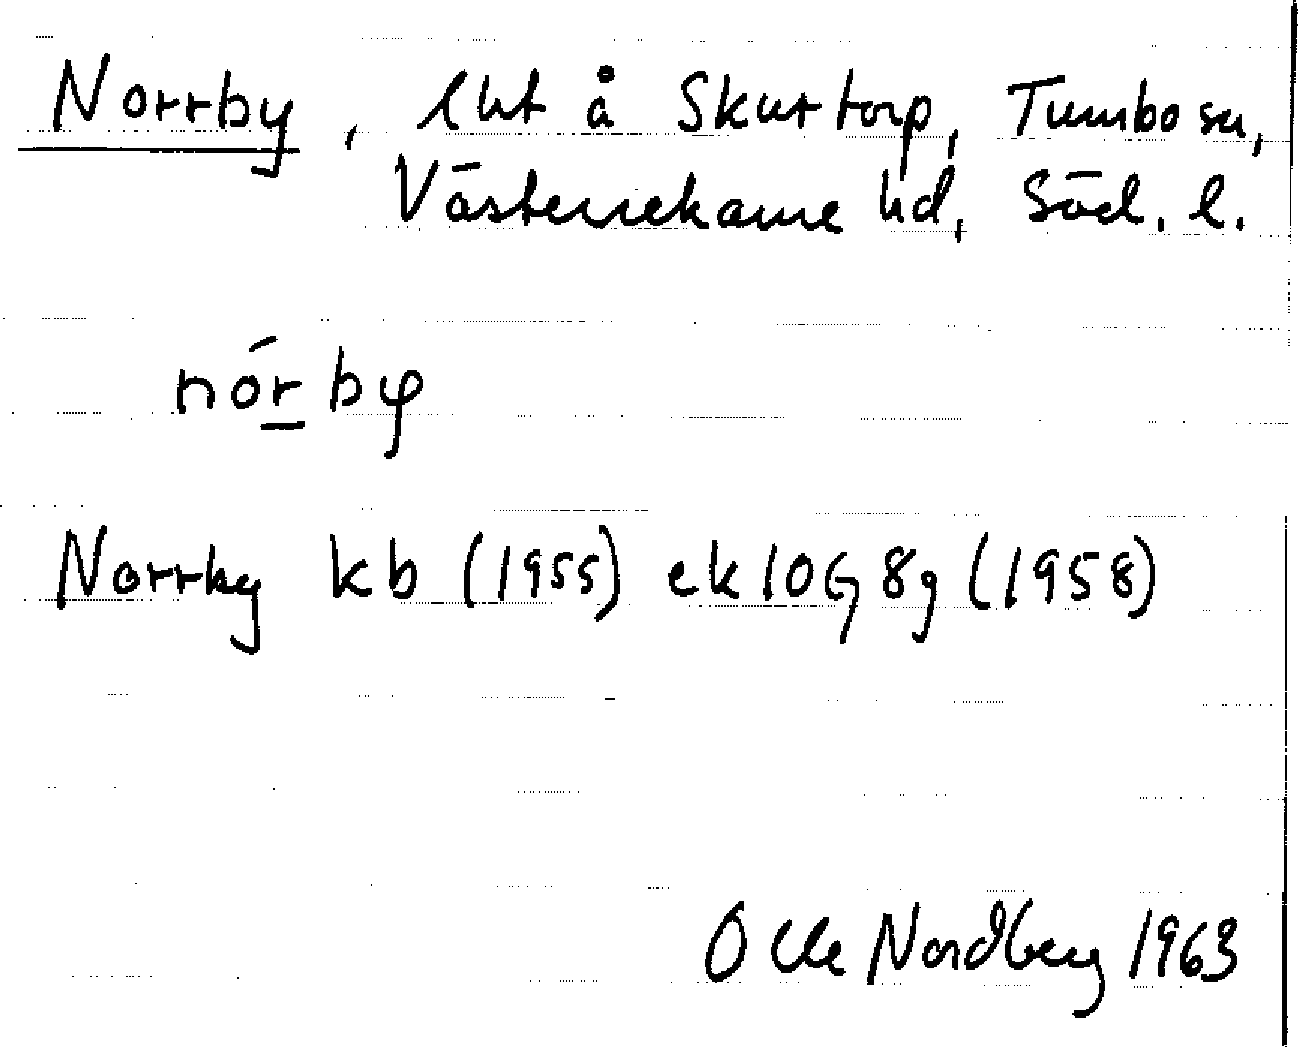 Norrby, lht å Skurtorp, Tumbo sn,
Västerrekarne hd, Söd. l.
nórby
Norrby kb (1955) ek 10G 8g (1958)
Olle Nordberg 1963